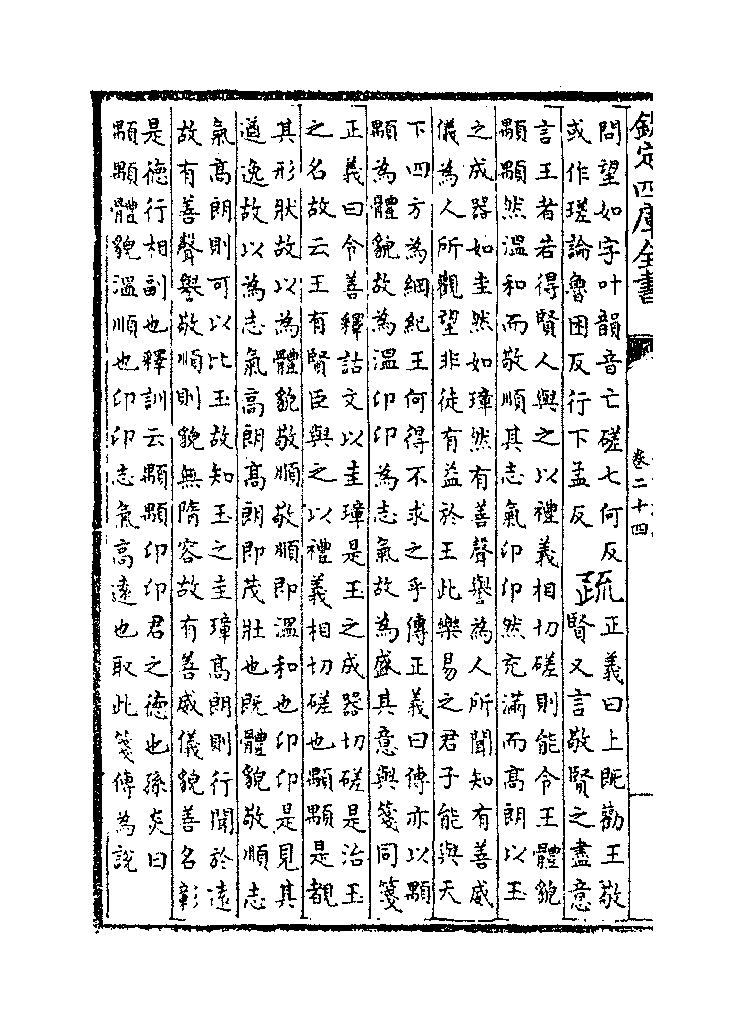 欽定四庫全書
卷二十四
問望如字叶韻音亡磋七何反
或作瑳論魯困反行下孟反
疏
正義曰上既勸王敬
賢又言敬賢之盡意
言王者若得賢人與之以禮義相切磋則能令王體貌
顒顒然溫和而敬順其志氣卬卬然充滿而高朗以玉
之成器如圭然如璋然有善聲譽為人所聞知有善威
儀為人所觀望非徒有益於王此樂易之君子能與天
下四方為綱紀王何得不求之乎傳正義曰傳亦以顒
顒為體貌故為溫卬卬為志氣故為盛其意與箋同箋
正義曰令善釋詁文以圭璋是玉之成器切磋是治玉
之名故云王有賢臣與之以禮義相切磋也顒顒是覩
其形狀故以為體貌敬順敬順即溫和也卬卬是見其
遒逸故以為志氣高朗高朗即茂壯也既體貌敬順志
氣高朗則可以比玉故知玉之圭璋高朗則行聞於遠
故有善聲譽敬順則貌無隋容故有善威儀貌善名彰
是德行相副也釋訓云顒顒卬卬君之德也孫炎曰
顒顒體貌溫順也卬卬志氣高遠也取此箋傳為說